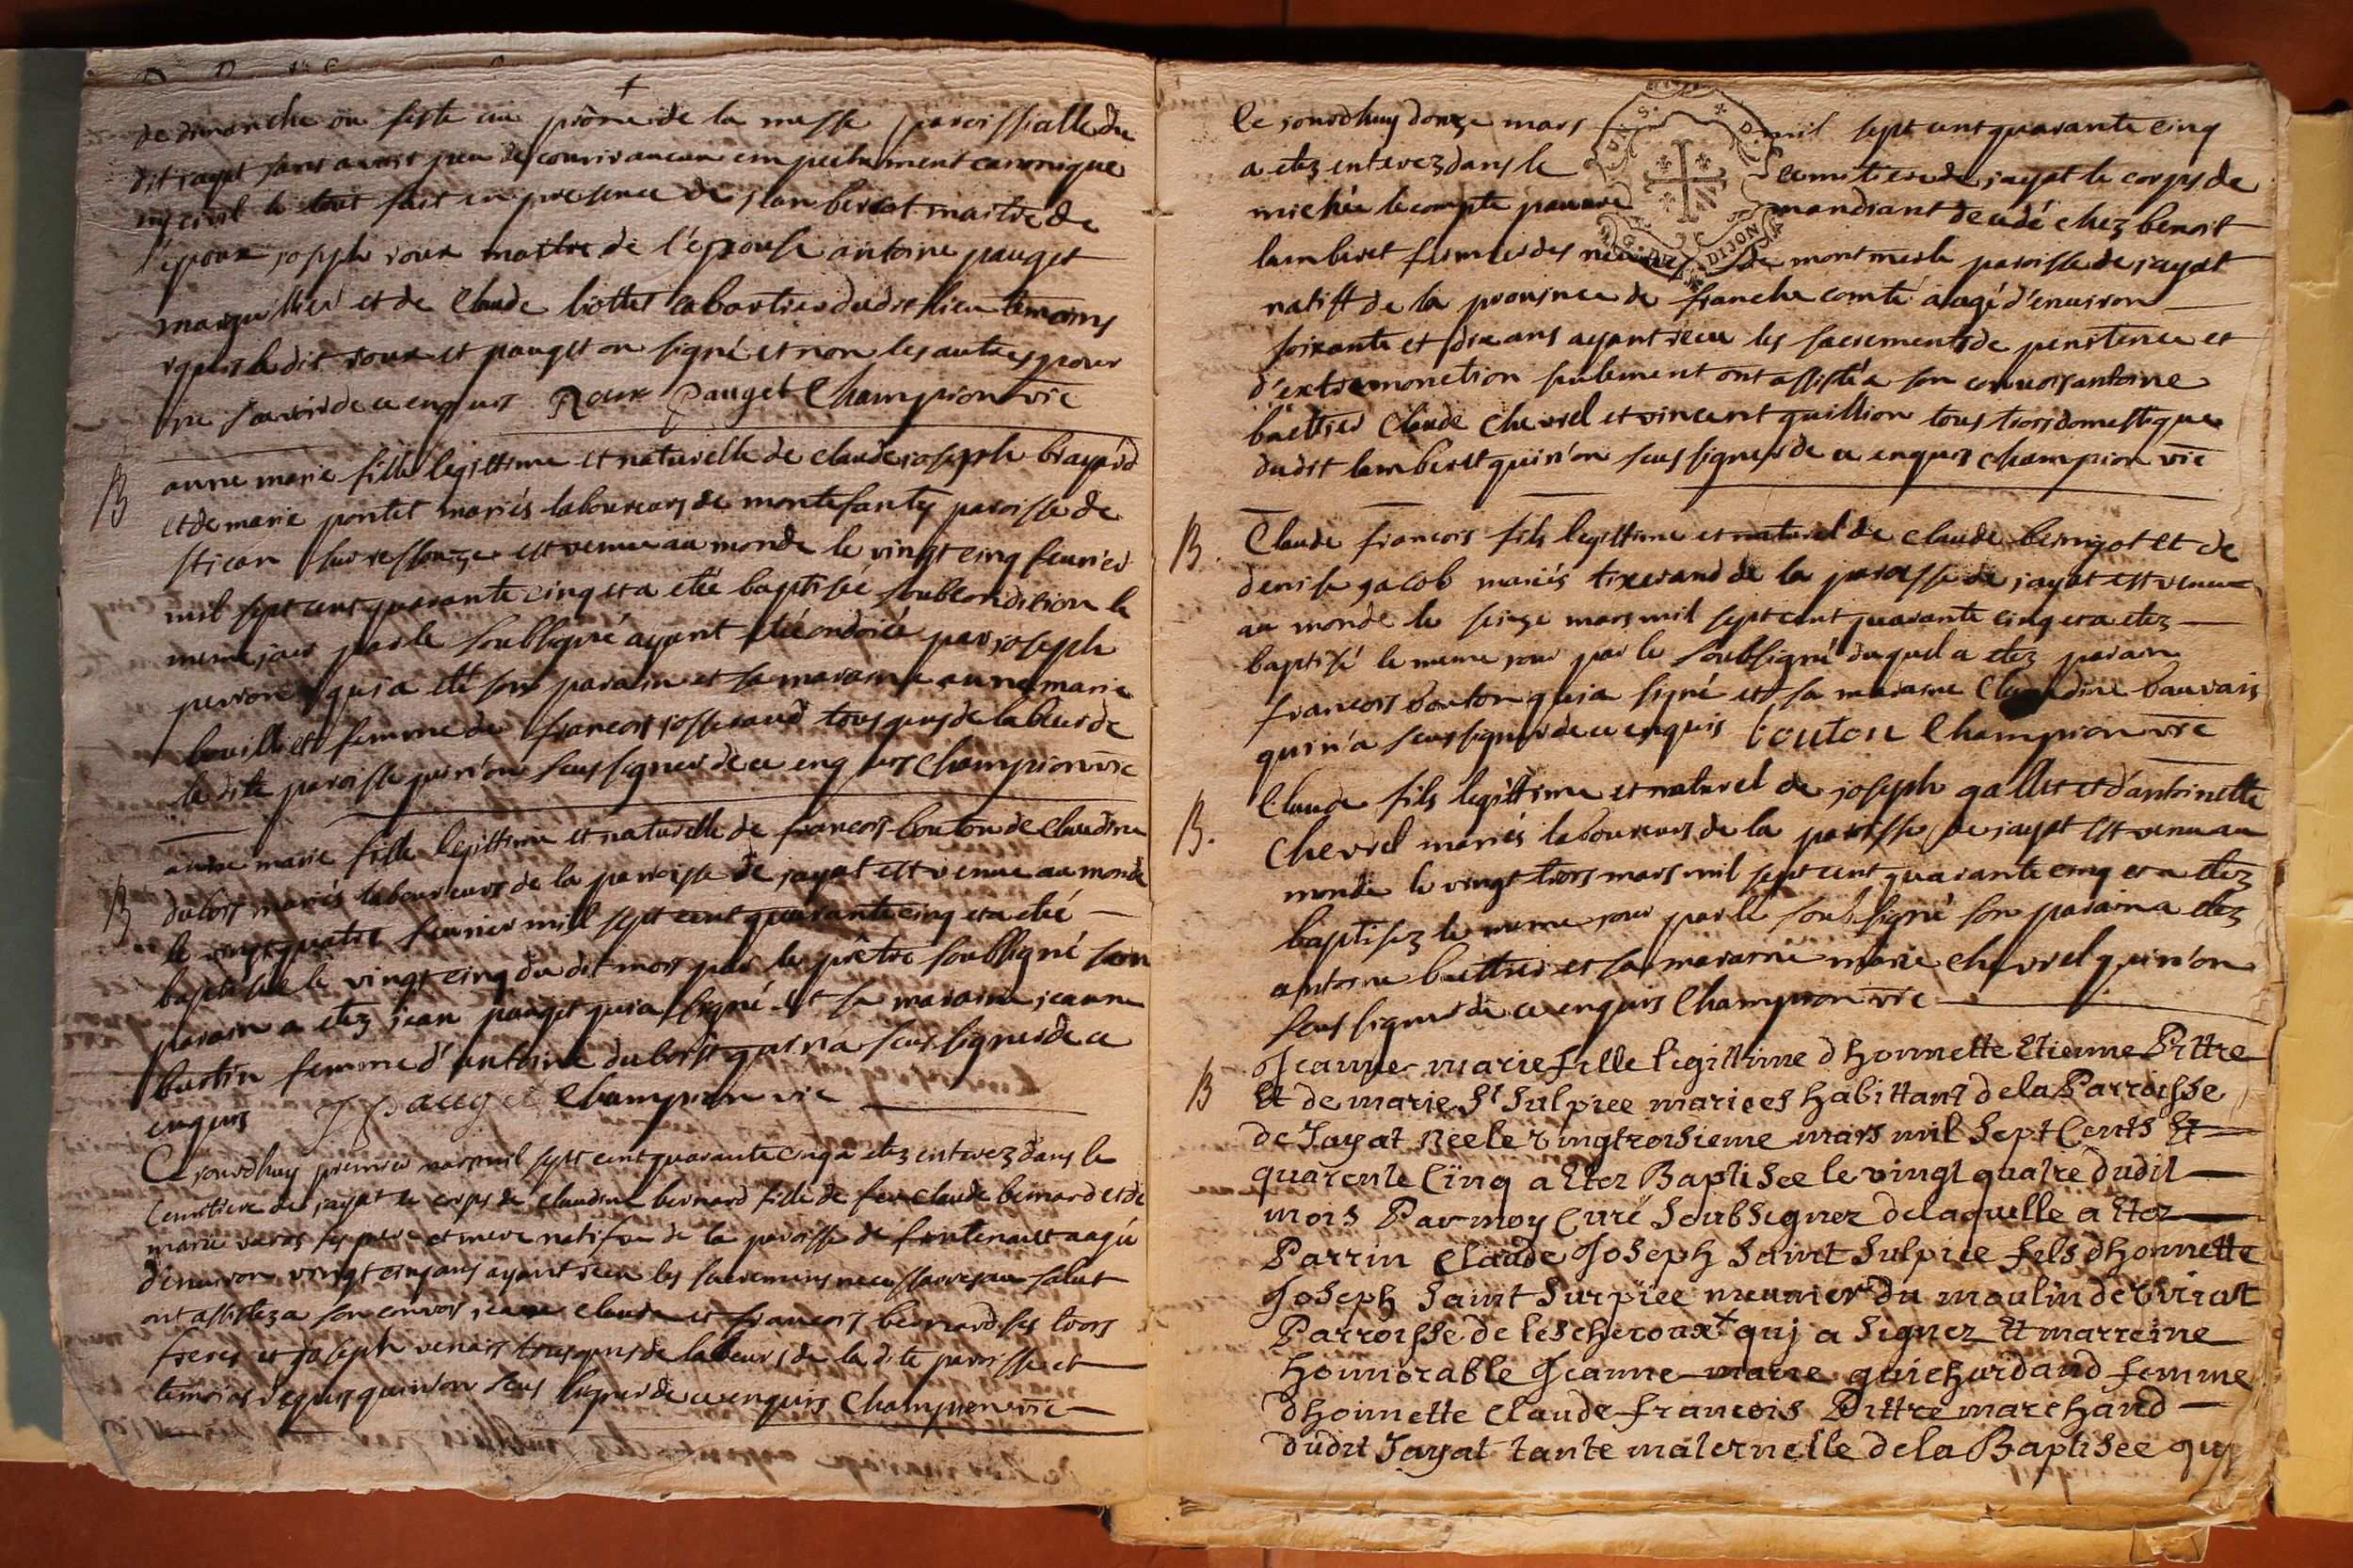 de dimanche ou feste au prône de la messe paroissialle du
dit jayat sans avoir peu decouvrir aucun empechement canonique
ny civil le tout fait en presence de jean bereot maitre de
l'epoux joseph roux maitre de l'epouse antoine pauget
marguillier et de Claude liottet cabartier dudit lieu temoins
rquis ledit roux et pauget on signé et non les autres pour
ne savoir de ce enquis Roux Pauget Champion vic
B
anne marie fille legittime et naturelle de claude joseph brayard
et de marie pontet mariés laboureurs de montefanty paroisse de
st jean sur ressouze est venue au monde le vingt cinq fevrier
mil sept cent quarante cinq et a eté baptisée soub condition le
meme jour par le soubsigné ayant eté ondoiée par joseph
perron qui a eté son parain et sa maraine anne marie
bouillet femme de francois josserand tous gens de labeur de
la dite paroisse qui n'on seus signer de ce enquis Champion vic
B
anne marie fille legittime et naturelle de francois bouton de Claudine
dubois mariés laboureurs de la paroisse de jayat est venue au monde
le vingt quatre fevrier mill sept cent quarante cinq et a eté
baptisée le vingt cinq du dit mois par le prêtre soubsigné son
parain a etez jean pauget qui a signé et sa maraine jeanne
bastin femme d'antoine dubois qui n'a seus signer de ce
enquis J Pauget Champion vic
Ce jourdhuy premier mars mil sept cent quarante cinq a etez enterez dans le
Cemitiere de jayat le corps de claudine bernard fille de feu claude bernard et de
marie varas ses pere et mere natifve de la paroisse de fontenailt aagée
d'environ vingt cinq ans ayant recu les sacremens necessaires au salut
ont assistez a son convois jean claude et francois bernard ses trois
freres et joseph venais tous gens de labeurs de la dite paroisse et
temoins requis qui n'on seus signer de ce enquis Champion vic
le jourdhuy douze mars mil sept cent quarante cinq
a etez enterez dans le cemitiere de jayat le corps de
michée lecompte pauvre mandiant decedé chez benoit
lamberet fermier des de montmerle paroisse de jayat
natift de la province de franche comté aagé d'environ
soixante et dix ans ayant recu les sacrements de penitence et
d'extremonction seulement ont assisté a son convois antoine
buettier Claude Chevrel et vincent guillion tous trois domestique
dudit lamberet qui n'on seus signer de ce enquis champion vic
B.
Claude francois fils legittime et naturel de claude beingot et de
denise jacob mariés tixerand de la paroisse de jayat est venu
au monde le seize mars mil sept cent quarante cinq et a etez
baptisé le meme jour par le soubsigné duquel a etez parain
francois bouton qui a signé et sa maraine Claudine bauvais
qui n'a seus signer de ce enquis bouton Champion vic
B.
Claude fils legittime et naturel de joseph gallet et d'antoinette
Chevrel mariés laboureurs de la paroisse de jayat est venu au
monde le vingt trois mars mil sept cent quarante cinq et a etez
baptisez le meme jour par le soubsigné son parain a etez
antoine buettier et sa maraine marie chevrel qui n'on
seus signer de ce enquis Champion vic
B
Jeanne marie fille legittime dhonnette Etienne Pittre
Et de marie St Sulpice mariees habittant de la Parroisse
de Jayat Néele vingtroisieme mars mil Sept Cents Et
quarente Cinq a Etez Baptisée le vingt quatre dudit
mois Par moy Curé Soubsignez delaquelle a Etez
Parrin Claude Joseph Saint Sulpice fils dhonnette
Joseph Saint Surpice meunier du moulin de Viriat
Parroisse de lescheroux qui a Signez Et marreine
honnorable Jeanne marie guichardand femme
dhonnette Claude francois Pittre marchand
dudit Jayat tante maternelle de la Baptisée qui